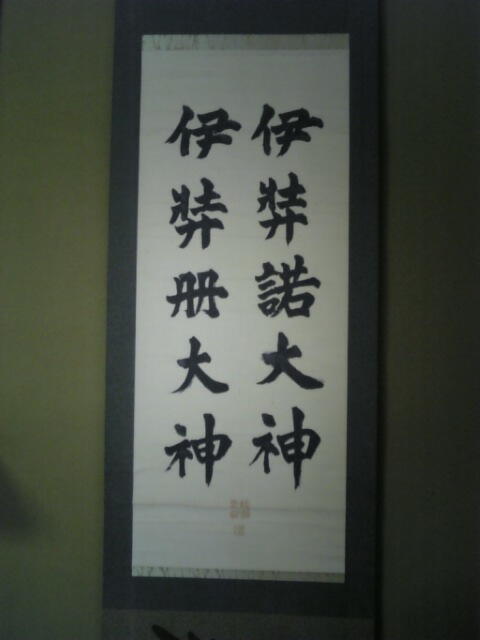 伊弉諾大神
伊弉册大神